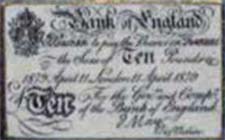 Bank of England
to pay the Bearer on
the Sum of Ten Pounds
1879 April 11 London 11 April 1879
For the Govr and Compa
of the Bank of England
Ten
F. May